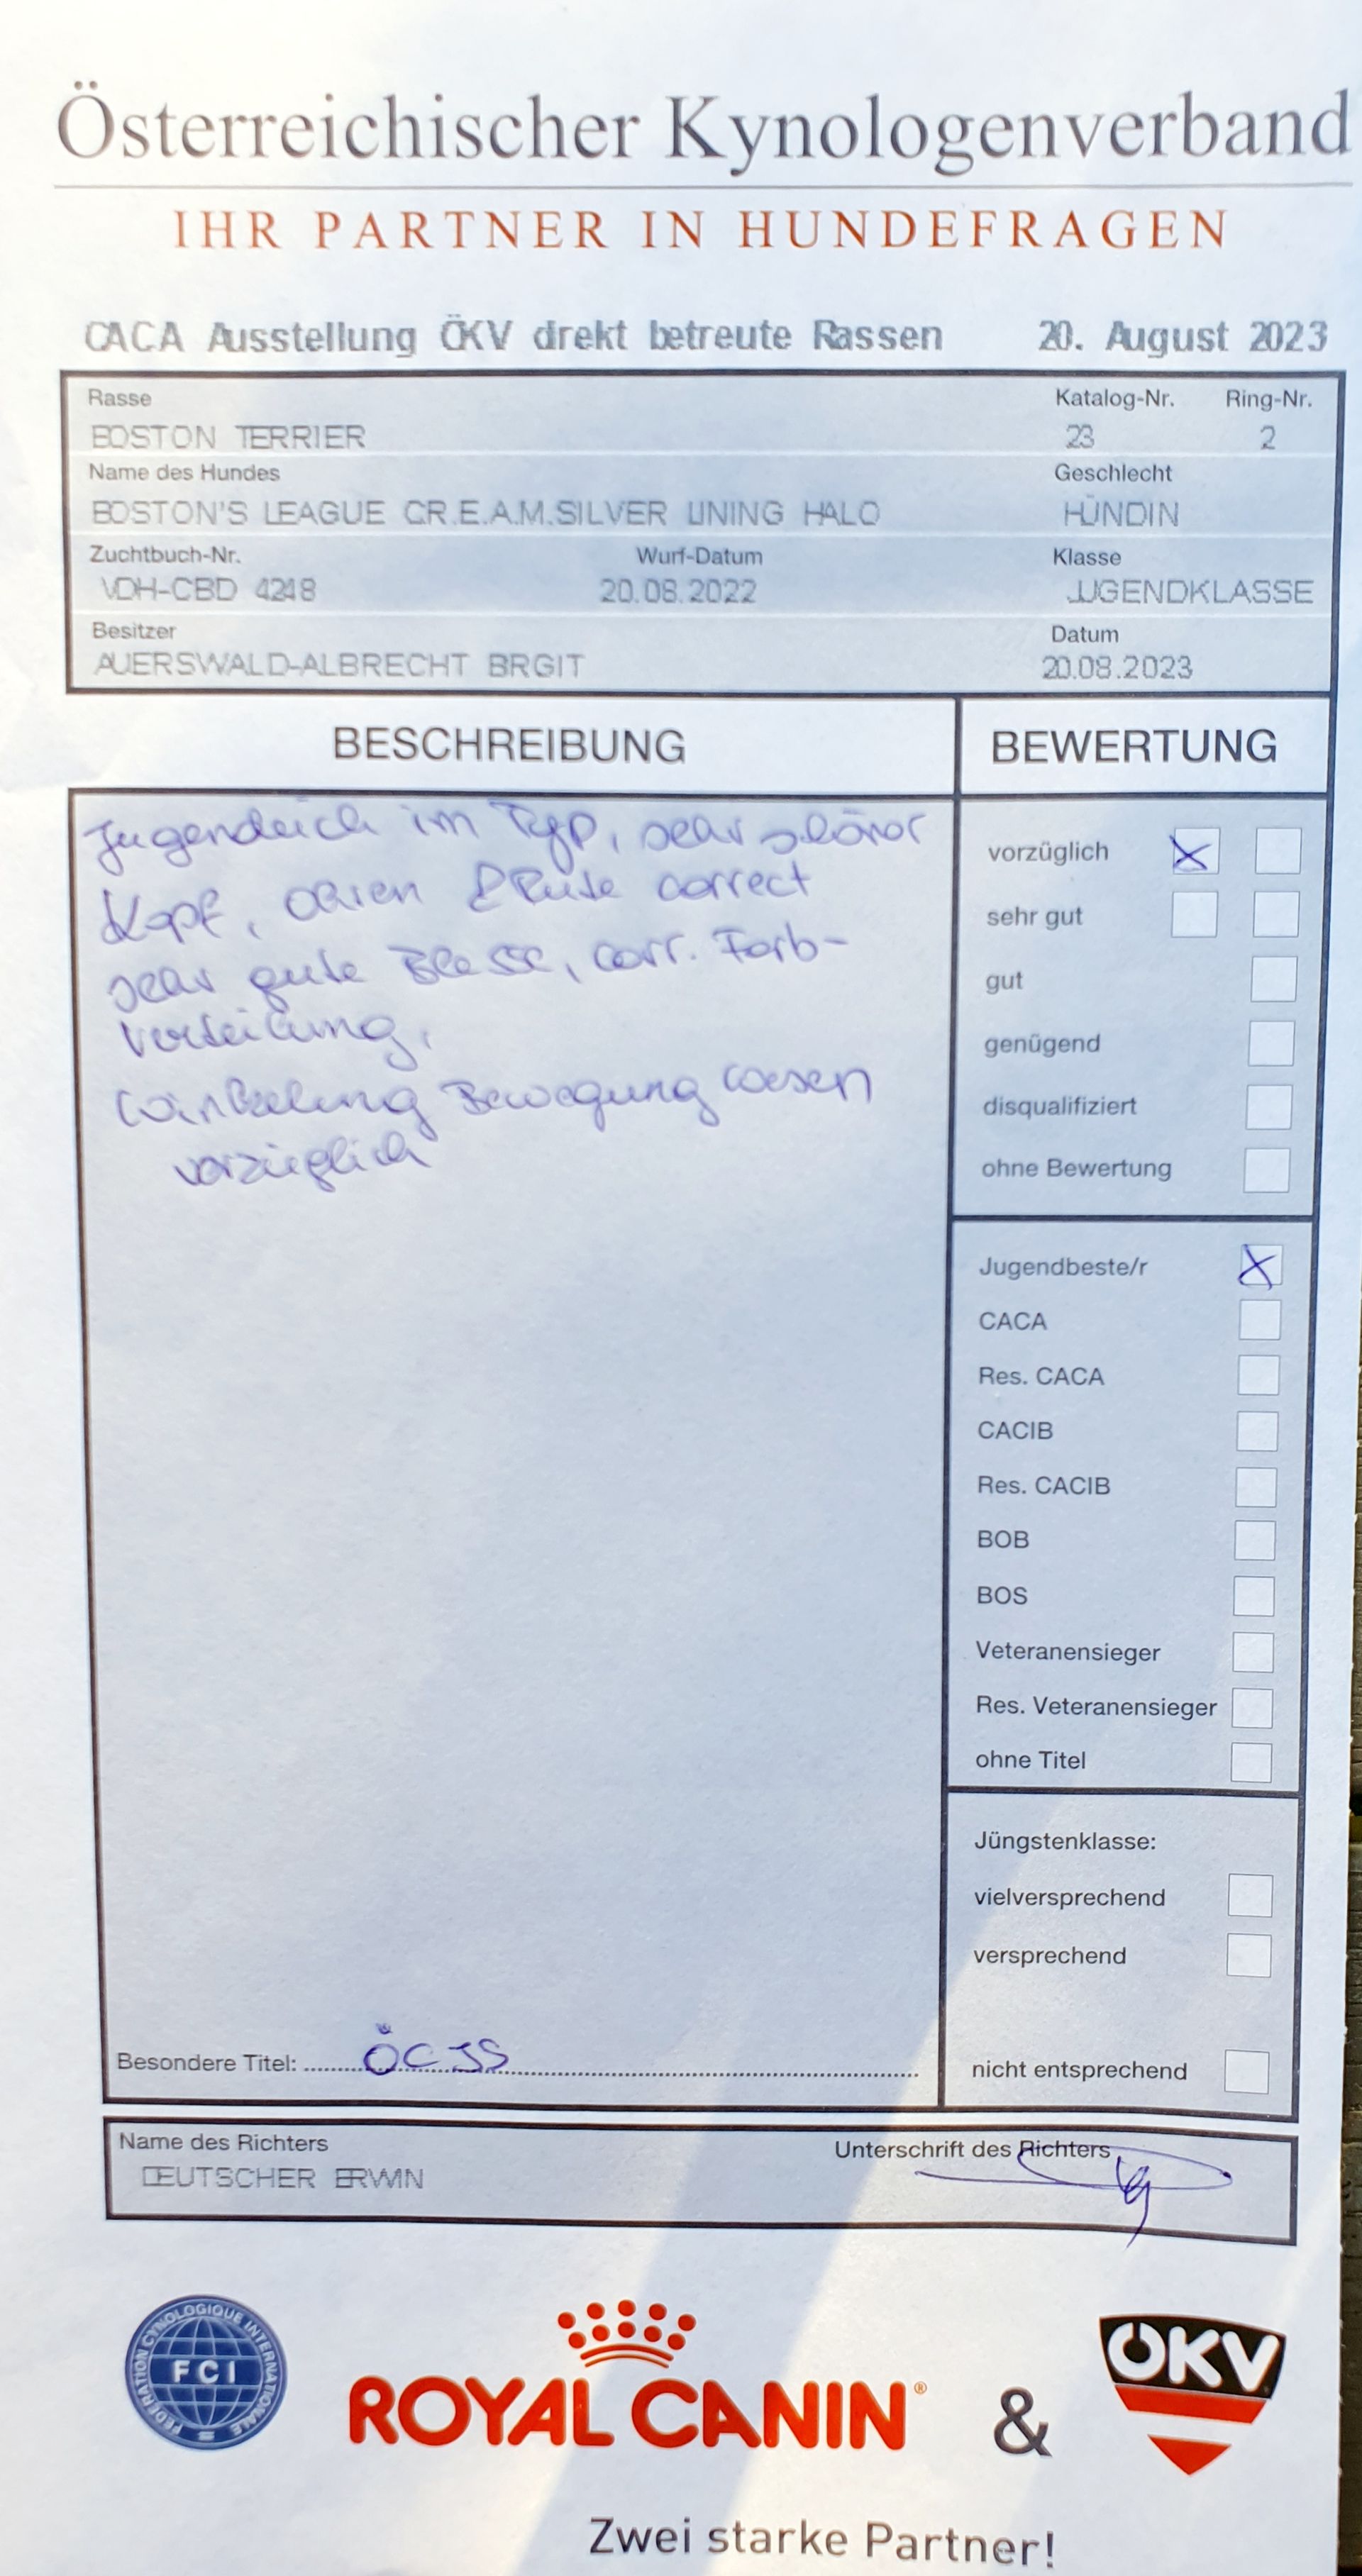 Österreichischer Kynologenverband
IHR PARTNER IN HUNDEFRAGEN
CACA Ausstellung ÖKV direkt betreute Rassen 20. August 2023
Rasse Katalog-Nr. Ring-Nr.
BOSTON TERRIER 23 2
Name des Hundes Geschlecht
BOSTON'S LEAGUE C.R.E.A.M.SILVER LINING HALO HÜNDIN
Zuchtbuch-Nr. Wurf-Datum Klasse
VDH-CBD 4248 20.08.2022 JUGENDKLASSE
Besitzer Datum
AUERSWALD-ALBRECHT BIRGIT 20.08.2023
BESCHREIBUNG BEWERTUNG
Jugendlich im Typ, sehr schöner
Kopf, Ohren & Rute correct
sehr gute Blesse, corr. Farb-
verteilung,
Winkelung Bewegung Wesen
vorzüglich
vorzüglich X
sehr gut
gut
genügend
disqualifiziert
ohne Bewertung
Jugendbeste/r X
CACA
Res. CACA
CACIB
Res. CACIB
BOB
BOS
Veteranensieger
Res. Veteranensieger
ohne Titel
Jüngstenklasse:
vielversprechend
versprechend
nicht entsprechend
Besondere Titel: ÖCJS
Name des Richters Unterschrift des Richters
DEUTSCHER ERWIN
FEDERATION CYNOLOGIQUE INTERNATIONALE
FCI
ROYAL CANIN® & ÖKV
Zwei starke Partner!